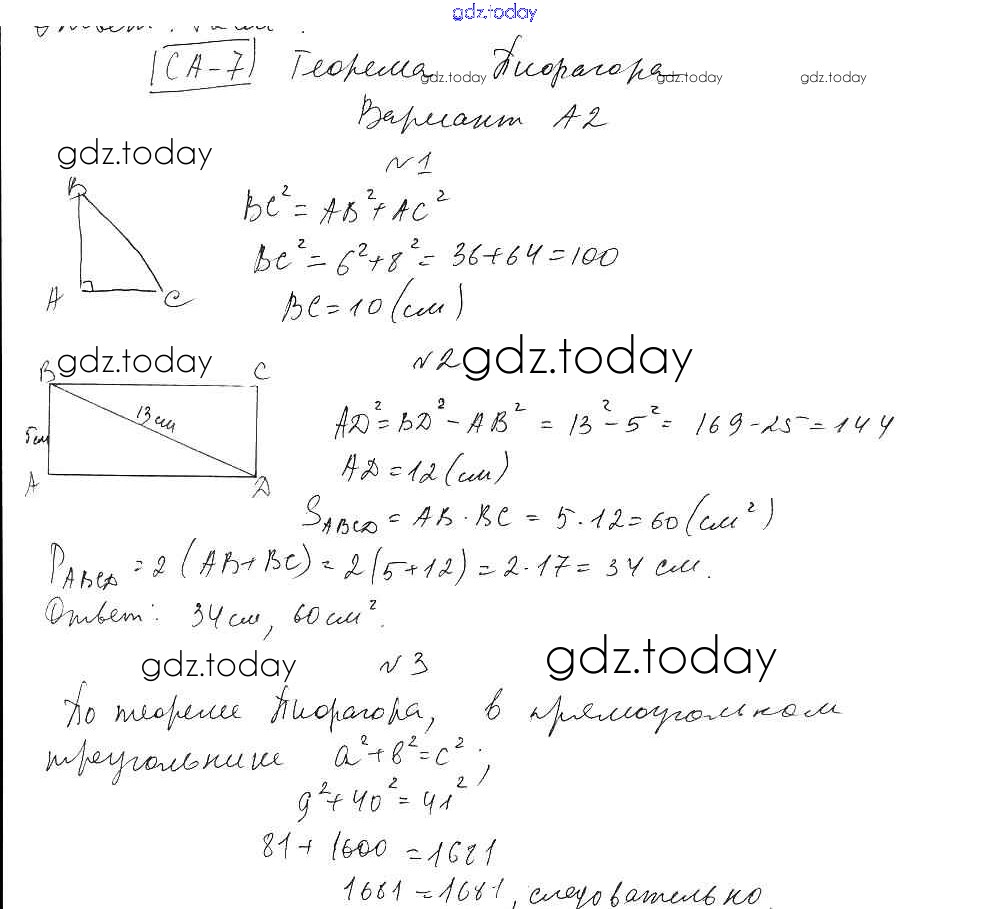 gdz.today
Ответ:
СА-7 Теорема Пифагора
gdz.today gdz.today gdz.today
Вариант А2
gdz.today
№1
B
BC² = AB² + AC²
BC² = 6² + 8² = 36 + 64 = 100
A C
BC = 10 (см)
gdz.today
№2 gdz.today
B C
13 см
5 см
AD² = BD² - AB² = 13² - 5² = 169 - 25 = 144
AD = 12 (см)
A D
S ABCD = AB · BC = 5 · 12 = 60 (см²)
P ABCD = 2 (AB + BC) = 2 (5 + 12) = 2 · 17 = 34 см.
Ответ: 34 см, 60 см².
gdz.today №3 gdz.today
По теореме Пифагора, в прямоугольном
треугольнике a² + b² = c²;
9² + 40² = 41²
81 + 1600 = 1681
1681 = 1681, следовательно,